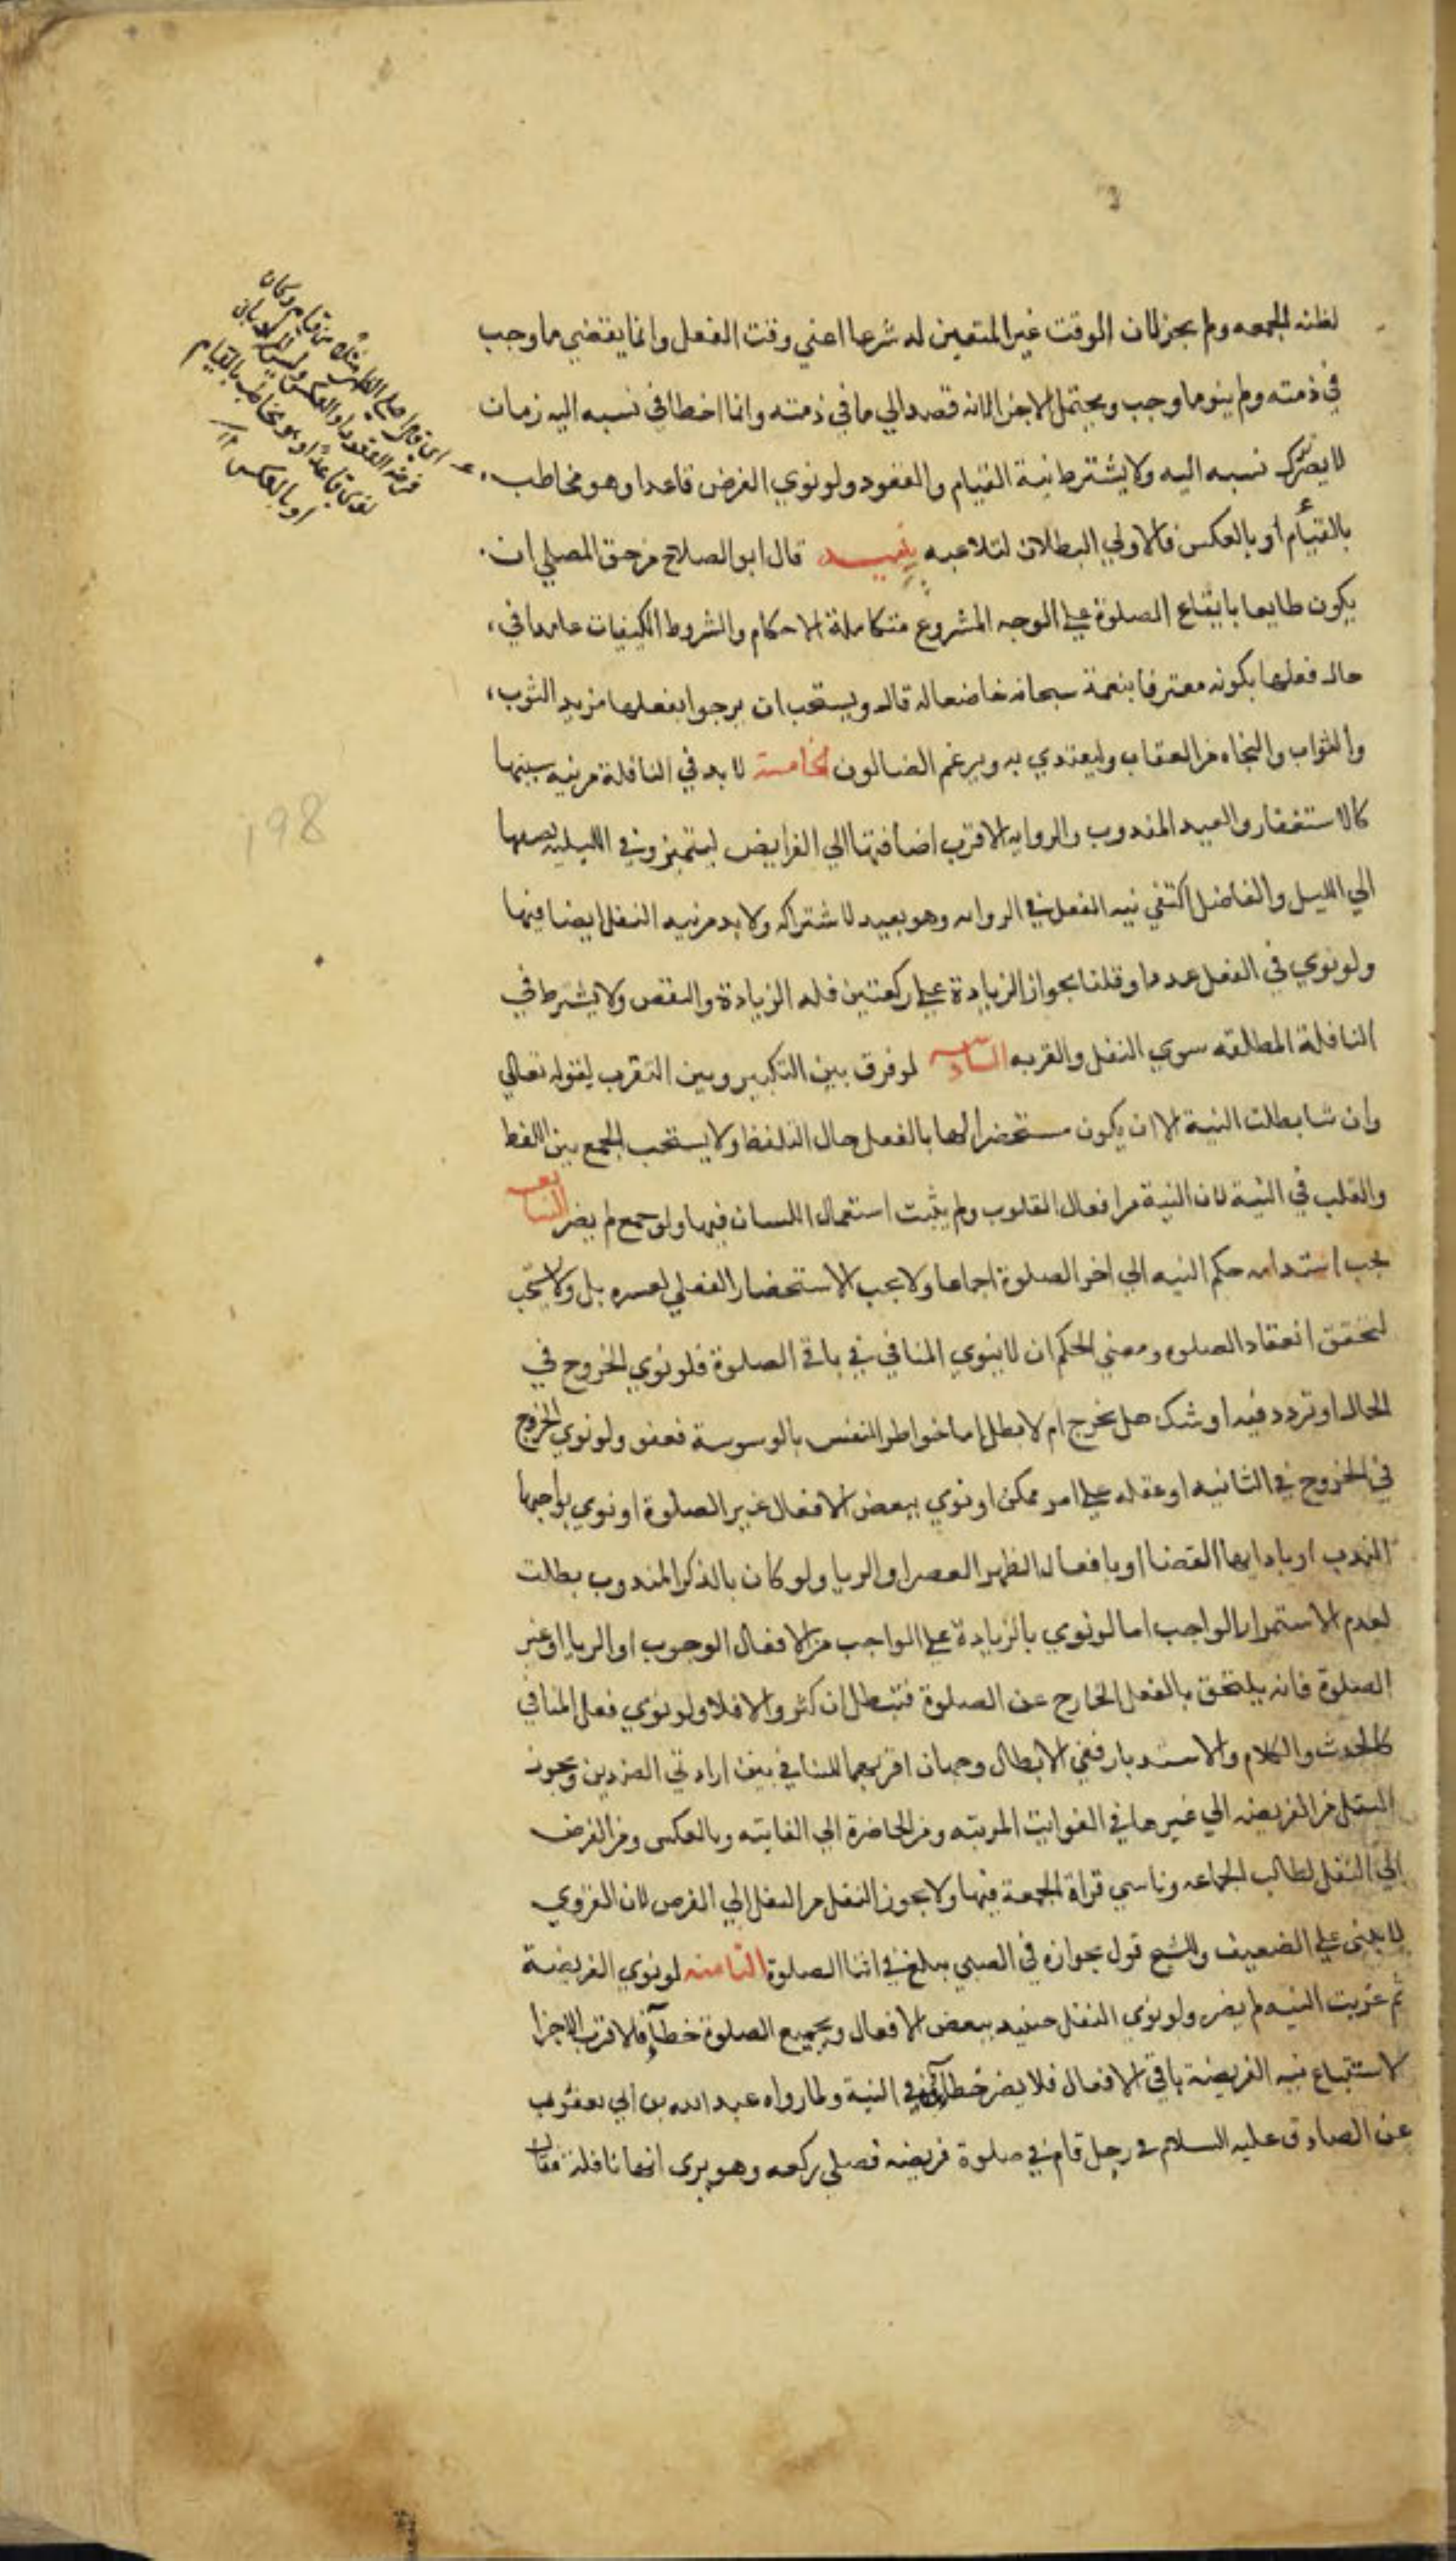 لظنه الجمعه ولم يجز لان الوقت غير المتعين له شرعا اعني وقت الفعل وانما يقضي ما وجب
في ذمته ولم ينو ما وجب ويحتمل الاجزا لانه قصد الي ما في ذمته وانما اخطا في نسبه اليه زمان
لا يضرك نسبه اليه ولا يشترط نية القيام والقعود ولو نوي الفرض قاعدا وهو مخاطب
بالقيام او بالعكس فالاولي البطلان لتلاعبه تنبيه قال ابو الصلاح من حق المصلي ان
يكون طايعا بايقاع الصلوة علي الوجه المشروع متكاملة الاحكام والشروط الكيفيات عامدا في
حال فعلها بكونه معترفا بنعمة سبحانه خاضعا له قال ويستحب ان يرجو بفعلها مزيد الثوب
والثواب والنجاه من العقاب وليقتدي به ويرغم الضالون الخامسة لا بد في النافلة من نيه سببها
كالاستغفار والعيد المندوب والروايه الاقرب اضافتها الي الفرايض ليتميز وفي الليليه يضيفها
الي الليل والفاضل اكتفي نيه الفعل في الرواىه وهو بعيد لاشتراكه ولا بد من نيه النفل ايضا فيها
ولو نوي في النفل عددا وقلنا بجواز الزيادة علي ركعتين فله الزيادة والنقص ولا يشترط في
النافلة المطلقه سوي النفل والقربه السادسه لو فرق بين التكبير وبين التقرب لقوله تعالي
وان شا بطلت النية الا ان يكون مستحضرا لها بالفعل حال التلفظ ولا يستحب الجمع بين اللفظ
والقلب في النية لان النية من افعال القلوب ولم يثبت استعمال اللسان فيها ولو جمع لم يضر السابعه
يجب استدامه حكم النيه الي اخر الصلوة اجماعا ولا يجب الاستحضار الفعلي لعسره بل ولا يستحب
لتحقق انعقاد الصلوه ومعني الحكم ان لا ينوي المنافي في باقي الصلوة فلو نوي الخروج في
الحال او تردد فيه او شك هل يخرج ام لا بطل اما خواطر النفس بالوسوسة فعفو ولو نوي الخروج
في الخروج في الثانيه او علقه علي امر ممكن او نوي ببعض الافعال غير الصلوة او نوي بواجبها
الندب او بادايها القضا او بافعال الظهر العصر او الريا ولو كان بالذكر المندوب بطلت
لعدم الاستمرار الواجب اما لو نوي بالزيادة علي الواجب من الافعال الوجوب او الريا او غير
الصلوة فانه يلتحق بالفعل الخارج عن الصلوة فتبطل ان كثر والا فلا ولو نوي فعل المنافي
كالحدث والكلام والاستدبار ففي الابطال وجهان اقربهما للتنافي بين ارادتي الضدين ويجوز
النقل من الفريضه الي غيرها في الفوايت المرتبه ومن الحاضرة الي الفايته وبالعكس ومن الفرض
الي النفل لطالب الجماعه وناسي قراة الجمعة فيها ولا يجوز النقل من النفل الي الفرض لان القوي
لا يبني علي الضعيف وللشيخ قول بجوازه في الصبي يبلغ في اثنا الصلوة الثامنه لو نوي الفريضة
ثم عزبت النيه لم يضر ولو نوي النفل حينيد ببعض الافعال وبجميع الصلوة خطأ فالاقرب الاجزا
لاستتباع نيه الفريضة باقي الافعال فلا يضر خطاه في النية ولما رواه عبد الله بن ابي يعفور
عن الصادق عليه السلام في رجل قام في صلوة فريضه فصلي ركعه وهو يري انها نافلة فقال
فرضه القعود او العكس
لو نوى قاعدا وهو مخاطب بالقيام
او بالعكس
198